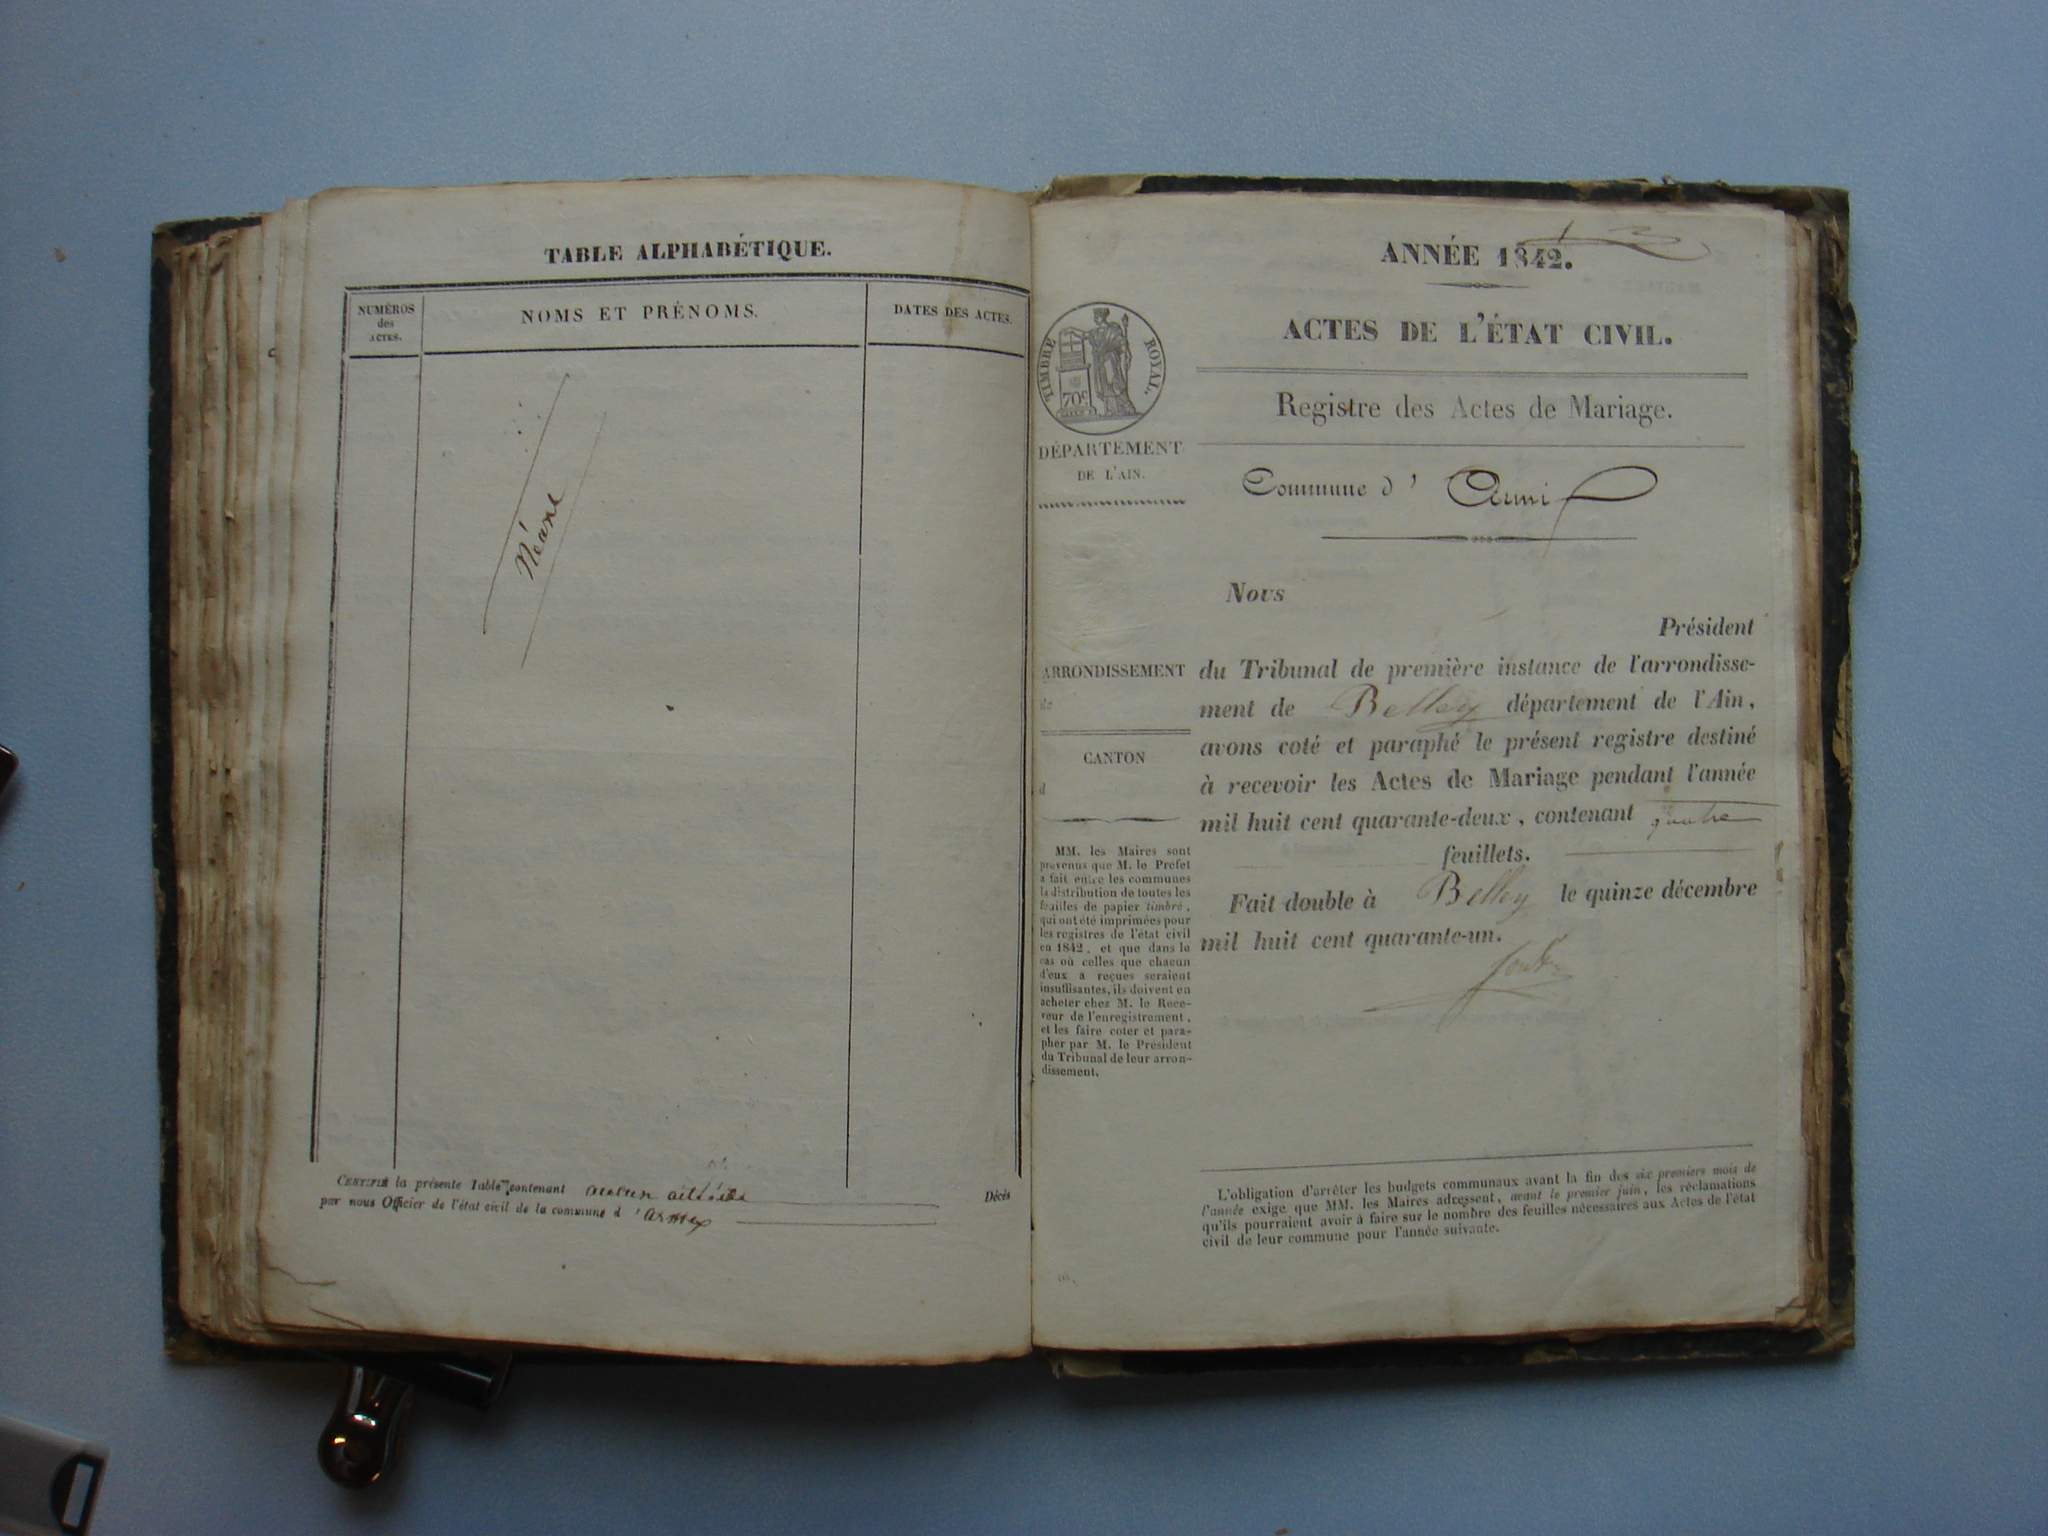 TABLE ALPHABÉTIQUE.
NUMÉROS
des
ACTES.
NOMS ET PRÉNOMS.
DATES DES ACTES.
Néant
CERTIFIÉ la présente Table contenant aucun
Décès
par nous Officier de l'état civil de la commune d'
ANNÉE 1842.
ACTES DE L'ÉTAT CIVIL.
Registre des Actes de Mariage.
TIMBRE ROYAL.
70c
DÉPARTEMENT
DE L'AIN.
Commune d'
Nous
Président
ARRONDISSEMENT
de
CANTON
d
du Tribunal de première instance de l'arrondisse-
ment de Belley département de l'Ain,
avons coté et paraphé le présent registre destiné
à recevoir les Actes de Mariage pendant l'année
mil huit cent quarante-deux, contenant quatre
feuillets.
Fait double à Belley le quinze décembre
mil huit cent quarante-un.
MM. les Maires sont
prévenus que M. le Préfet
a fait entre les communes
la distribution de toutes les
feuilles de papier timbré,
qui ont été imprimées pour
les registres de l'état civil
en 1842, et que dans le
cas où celles que chacun
d'eux a reçues seraient
insuffisantes, ils doivent en
acheter chez M. le Rece-
veur de l'enregistrement,
et les faire coter et para-
pher par M. le Président
du Tribunal de leur arron-
dissement.
L'obligation d'arrêter les budgets communaux avant la fin des six premiers mois de
l'année exige que MM. les Maires adressent, avant le premier juin, les réclamations
qu'ils pourraient avoir à faire sur le nombre des feuilles nécessaires aux Actes de l'état
civil de leur commune pour l'année suivante.